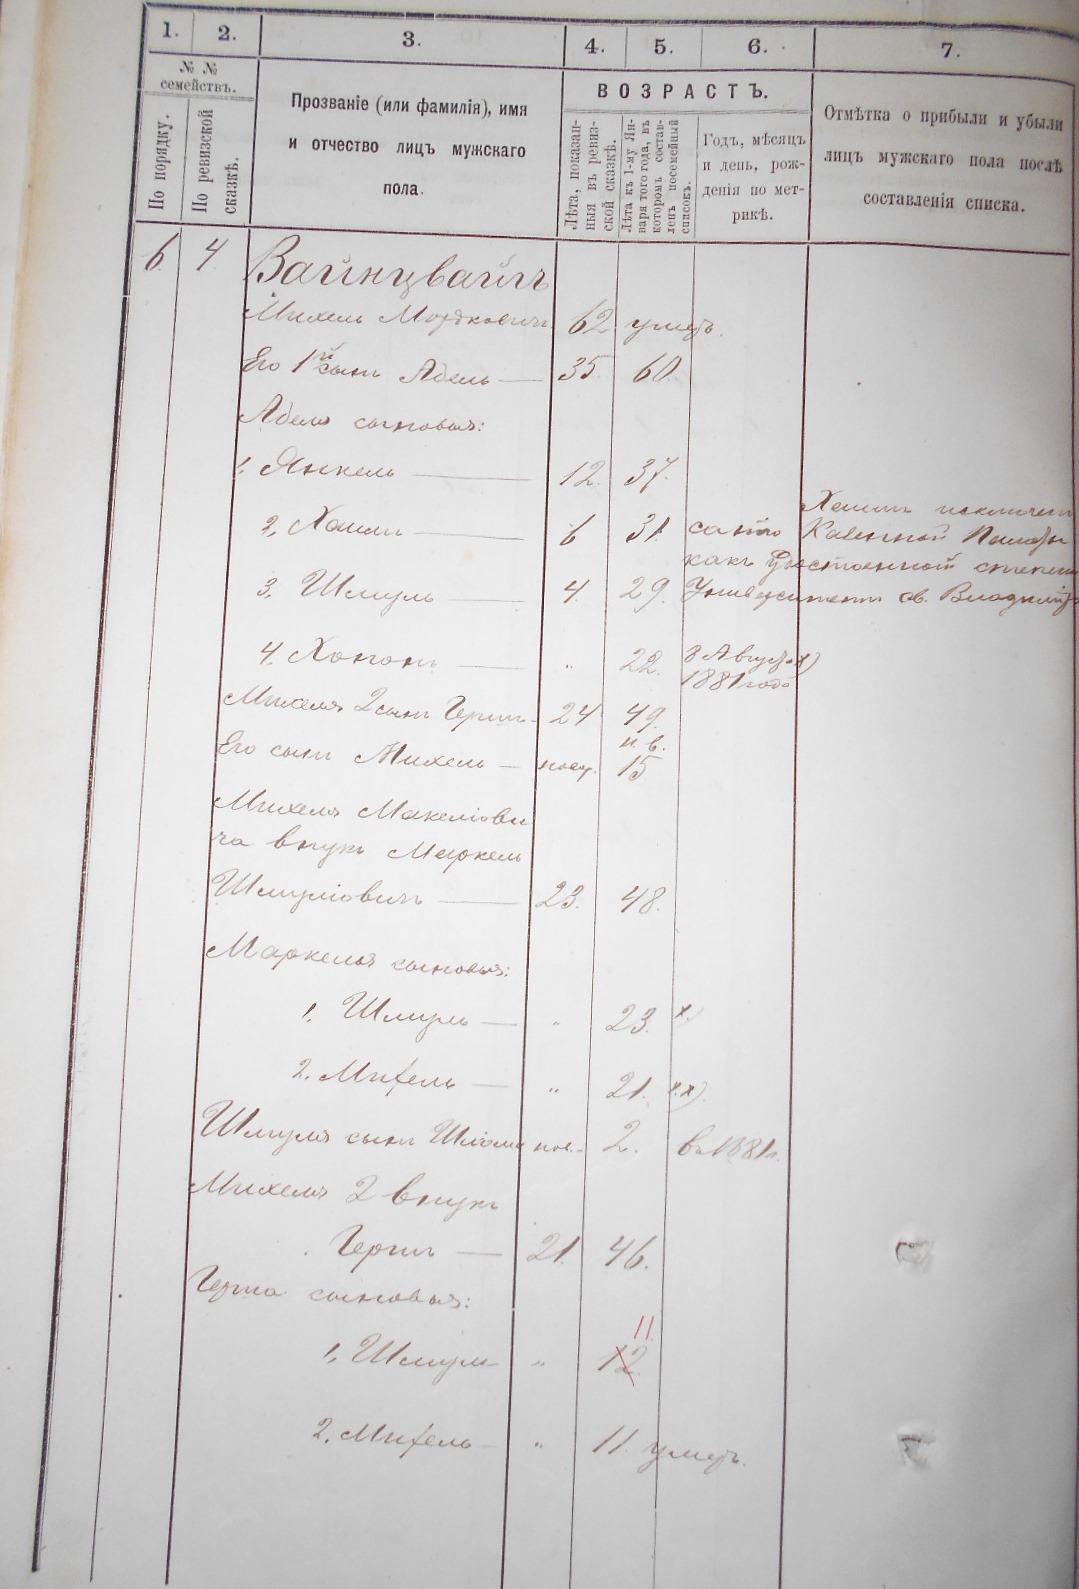 1. 2. 3. 4. 5. 6. 7.
№ №
семействъ.
По порядку.
По ревизской
сказкѣ.
Прозваніе (или фамилія), имя
и отчество лицъ мужскаго
пола.
ВОЗРАСТЪ.
Лѣта, показан-
ныя въ ревиз-
ской сказкѣ.
Лѣта къ 1-му Ян-
варя того года, въ
которомъ состав-
ленъ посемейный
списокъ.
Годъ, мѣсяцъ
и день, рож-
денія по мет-
рикѣ.
Отмѣтка о прибыли и убыли
лицъ мужскаго пола послѣ
составленія списка.
6. 4 Вайнцвайгъ
Михель Мордковичъ 62 умеръ.
Его 1й сынъ Абель — 35. 60.
Абеля сыновья:
1. Янкель — 12. 37.
Хаимъ исключенъ
2. Хаимъ — 6 31. Казенной Палаты
какъ удостоенный степени
3. Шмуль — 4. 29. Университета св. Владиміра
4. Хононъ — „ 22. 8 Августа
1881 года
Михеля 2 сынъ Герш- 24 49.
н. в.
Его сынъ Михель — посл. 15
Михеля
ча внукъ Меркель
Шмуліовичъ — 23. 48.
Маркеля сыновья:
1. Шмуль — „ 23. х)
2. Михель — „ 21. х.х).
Шмуля сынъ 2. въ 1881 г.
Михеля 2 внукъ
Герш — 21. 46.
Герша сыновья:
11.
1. Шмуль „ 12.
2. Михель — „ 11. умеръ.